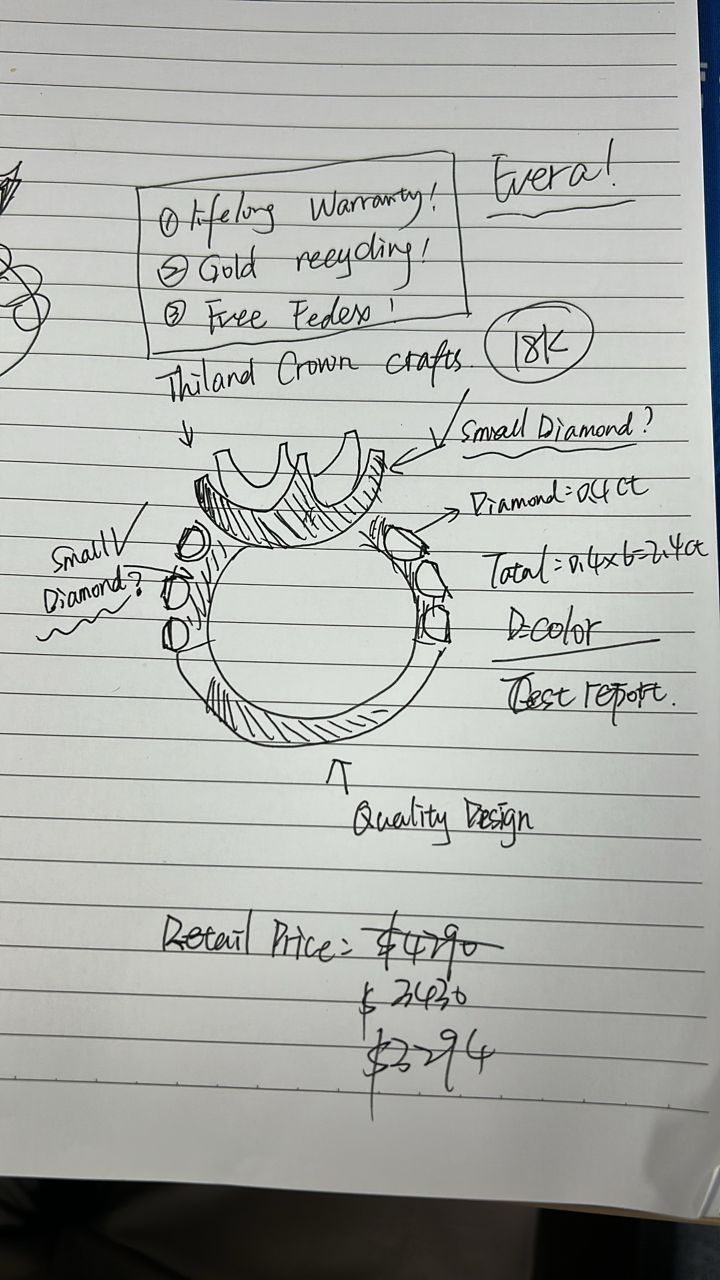 Evera!
① Lifelong Warranty!
② Gold recycling!
③ Free Fedex!
Thiland Crown crafts.
18K
Small Diamond?
Diamond=0.4ct
Small
Diamond?
Total=0.4×6=2.4ct
D=color
Test report.
Quality Design
Retail Price= $4290
$3430
$3294